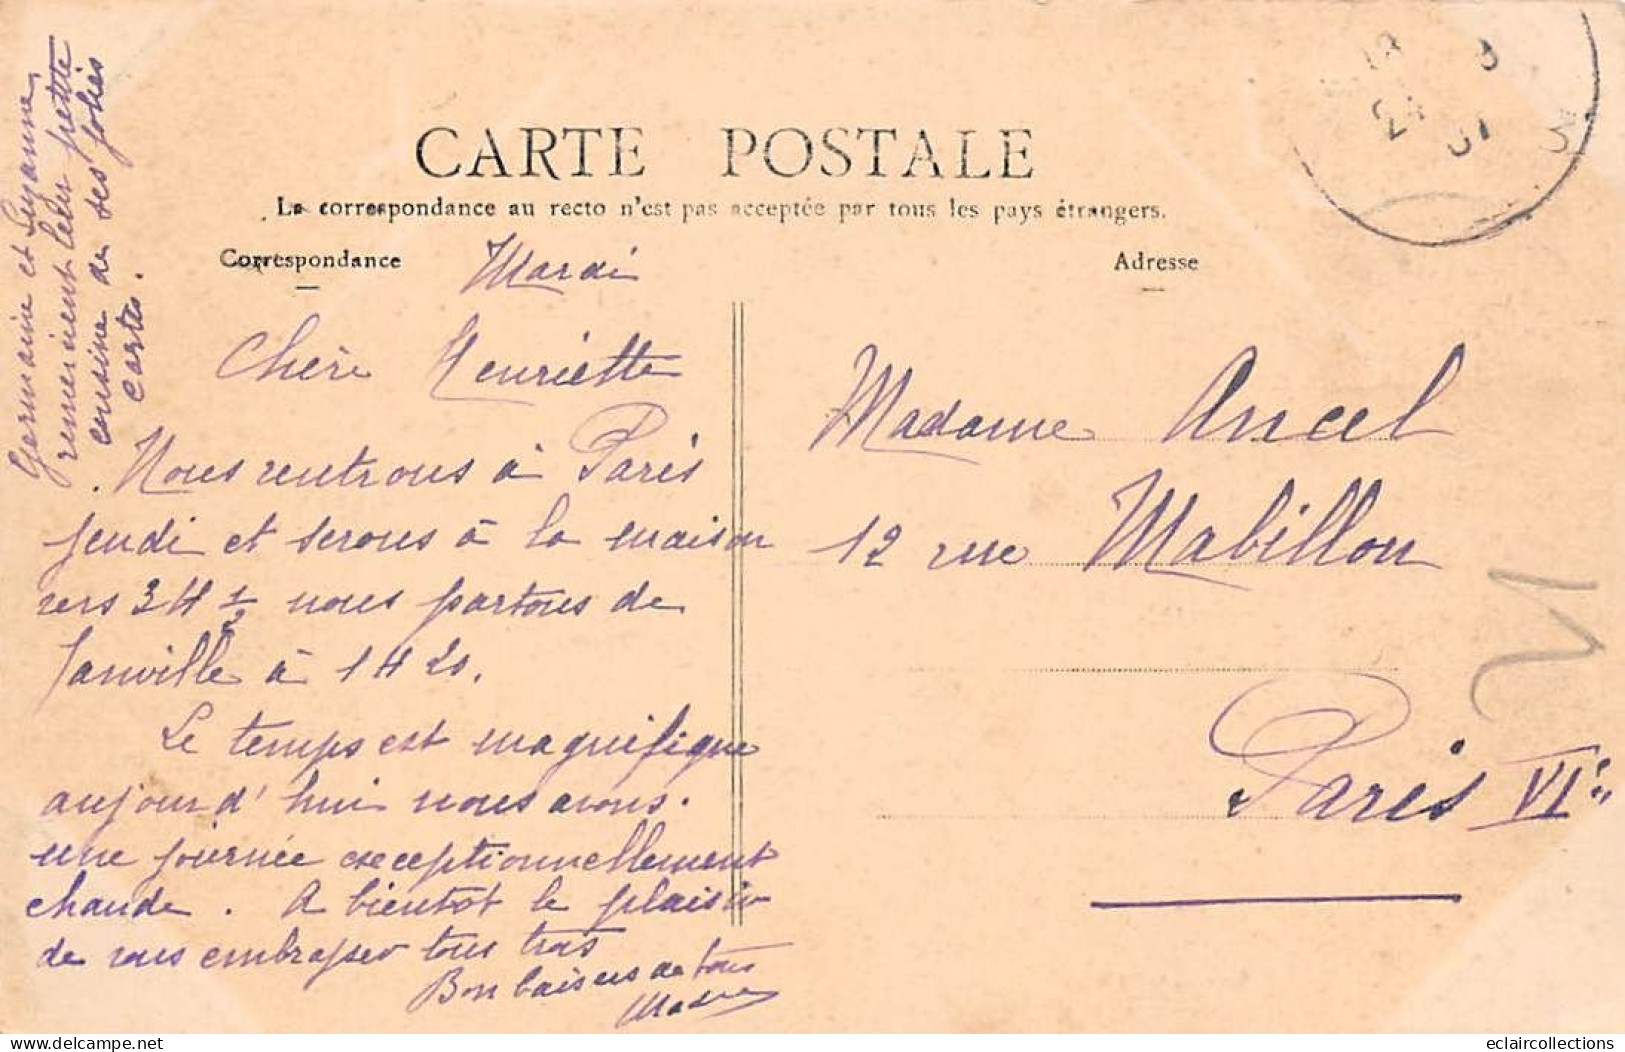 CARTE POSTALE
La correspondance au recto n'est pas acceptée par tous les pays étrangers.
Correspondance
Adresse
Mardi
Chère Henriette
Nous rentrons à Paris
jeudi et serons à la maison
vers 3 H 1/2 nous partons de
Janville à 1 H 20.
Le temps est magnifique
aujourd'hui nous avons
une journée exceptionnellement
chaude. A bientôt le plaisir
de vous embrasser tous trois
Bon baisers de tous
Germaine et Suzanne
remercient leur petite
cousine de ses jolies
cartes.
Madame Ancel
12 rue Mabillon
Paris VIe
24
07
eclaircollections
Delcampe.net